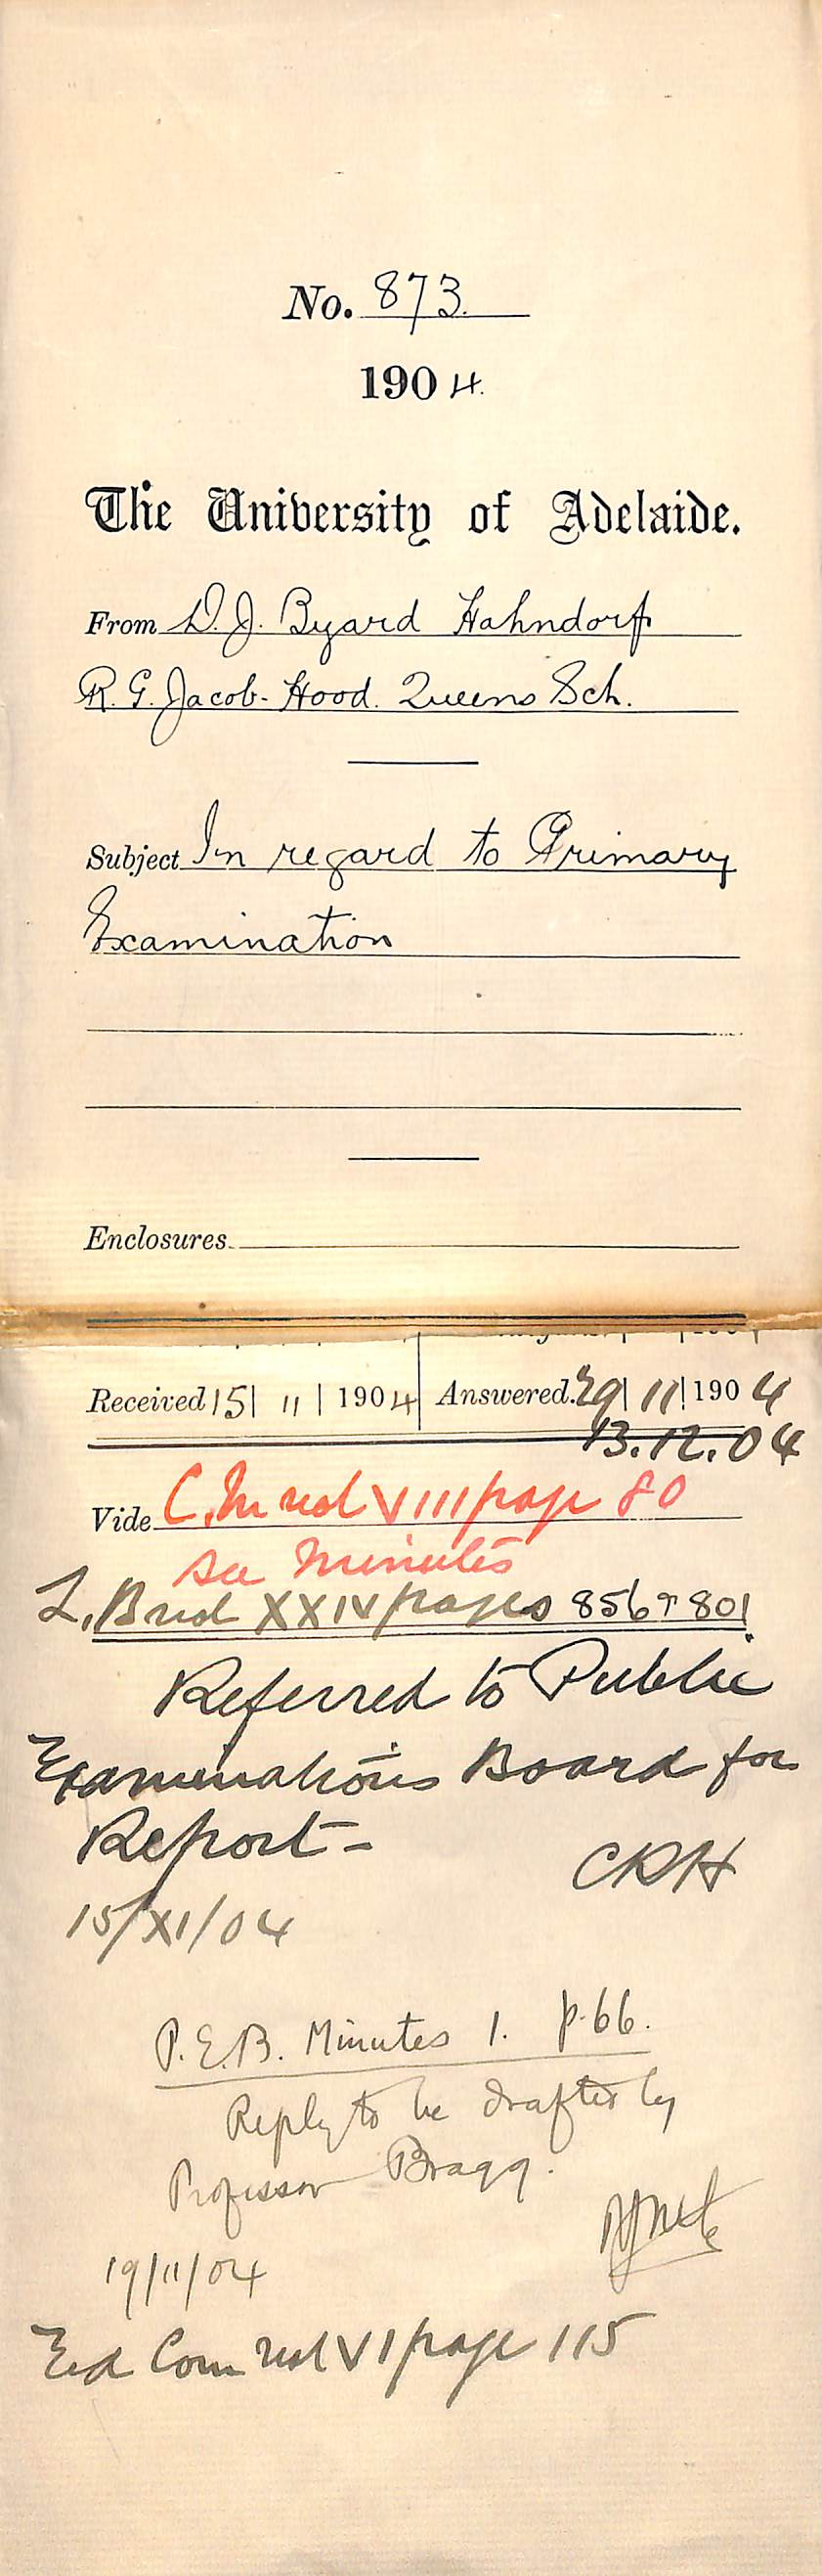 No. 873.
1904.
The University of Adelaide.
From D. J. Byard Hahndorf
R. G. Jacob-Hood. Queens Sch.
Subject In regard to Primary
Examination
Enclosures
Received 15 | 11 | 1904 Answered. 29 | 11 | 1904
13.12.04
Vide C.M vol VIII page 80
see Minutes
L.B vol XXIV pages 856 & 801
Referred to Public
Examinations Board for
Report -
CRH
15/XI/04
P.E.B. Minutes 1. p.66.
Reply to be drafted by
Professor Bragg.
19/11/04
Ed Com vol VI page 115